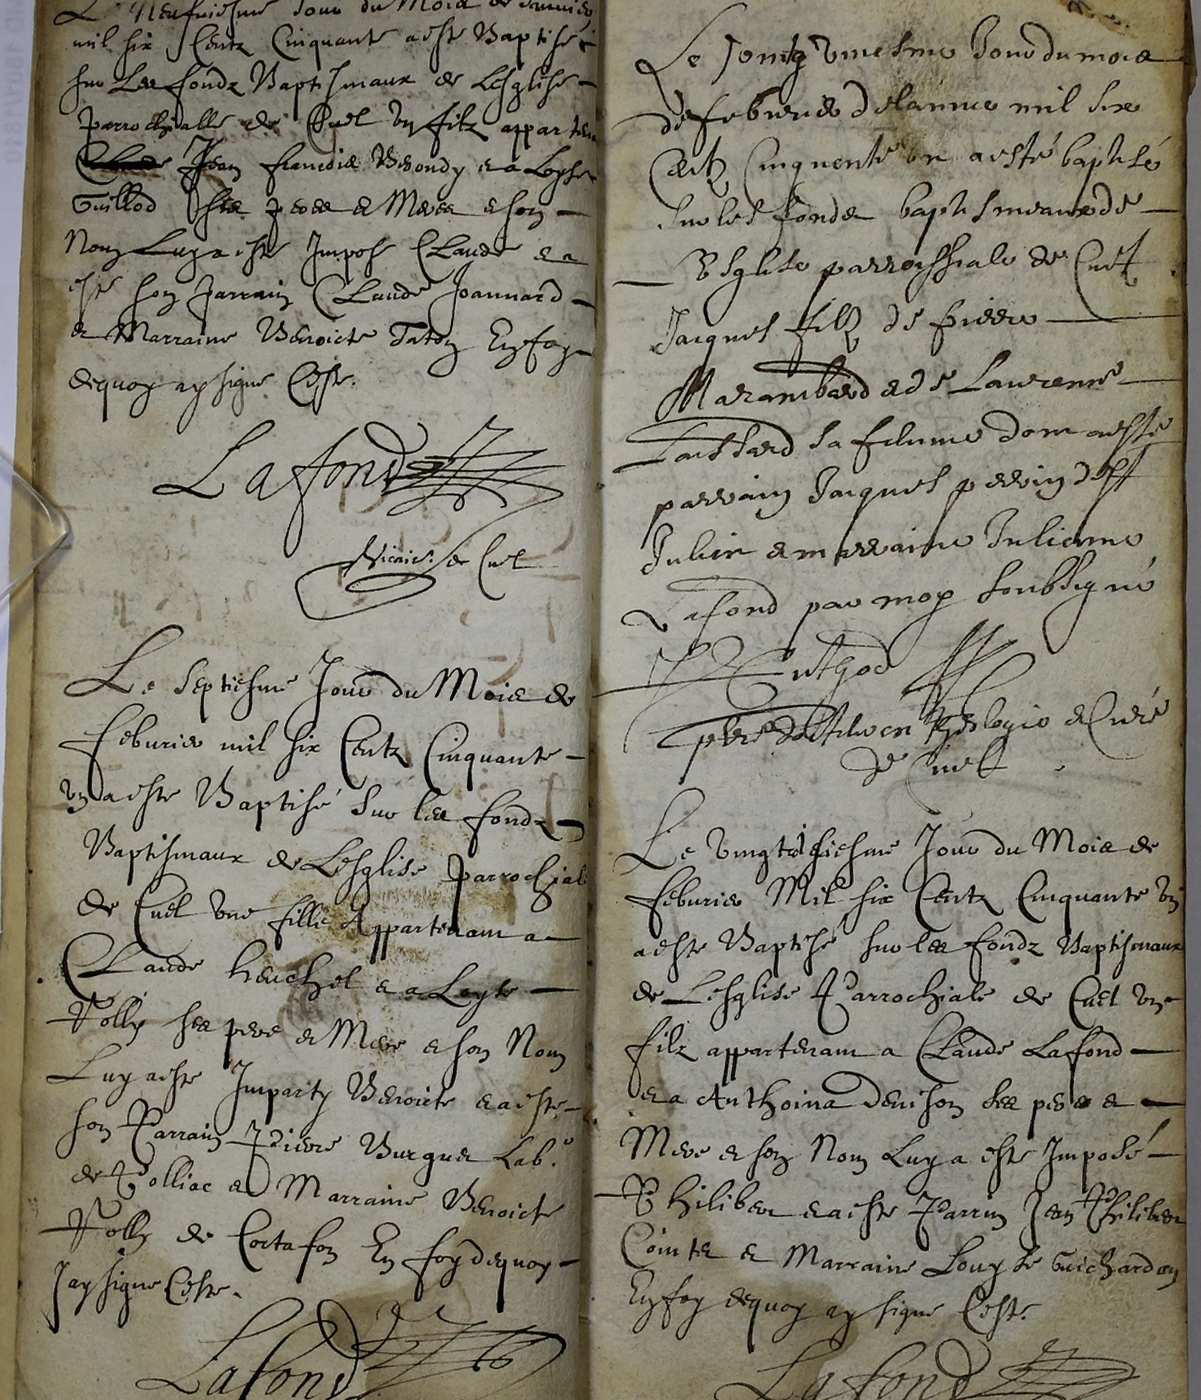 Le Neufviesme Jour du Mois de Janvier
mil six Centz Cinquante a este Baptisé
sur Les fondz Baptismaux de Lesglise
parrochialle de Cuel un filz apparten
Jean francois Berondy e a Loyse
Guillod Ses peres e Meres e son
Nom Luy a este Impose Claude e a
esté son parrain Claude Joannard
e Marraine Benoicte Taton En foy
dequoy ay signe Ceste.
Lafond
Vicaire de Cuel
Le Septiesme Jour du Mois de
feburier mil six Centz Cinquante
un a este Baptisé Sur les fondz
Baptismaux de Lesglise parrochial
de Cuel une fille Appartenam a
Claude e a Loyse
Folly ses pere et Mere e son Nom
Luy a este Imparty Benoicte e a este
son Parrain Pierre Burgue Lab.
de Polliac et Marraine Benoicte
Folly de Cortafon En foy dequoy
Jay signe Ceste.
Lafond
Le Jour du mois
de febvrier de lannee mil six
Centz Cinquente un a esté baptisé
sur les fonds baptismaux de
Esglise parroissiale de Cuet
Jacques fillz de pierre
Marambard e de Laurence
sa femme dom a esté
parrain Jacques perrin de St
Julien e marraine Julienne
Lafond par moy soubsigné
pbre e Curé
de Cuet
Le Vingt Jour du Mois de
feburier Mil six Centz Cinquante un
a este Baptisé sur les fondz Baptismaux
de Lesglise Parrochiale de Cuel un
filz appartenam a Claude Lafond
e a Anthoina Denison ses pere e
Mere e son Nom Luy a este Imposé
Philiber e a este Parrin Jean Philiber
Cointe e Marraine Louyse Guichardon
En foy dequoy ay signe Ceste.
Lafond